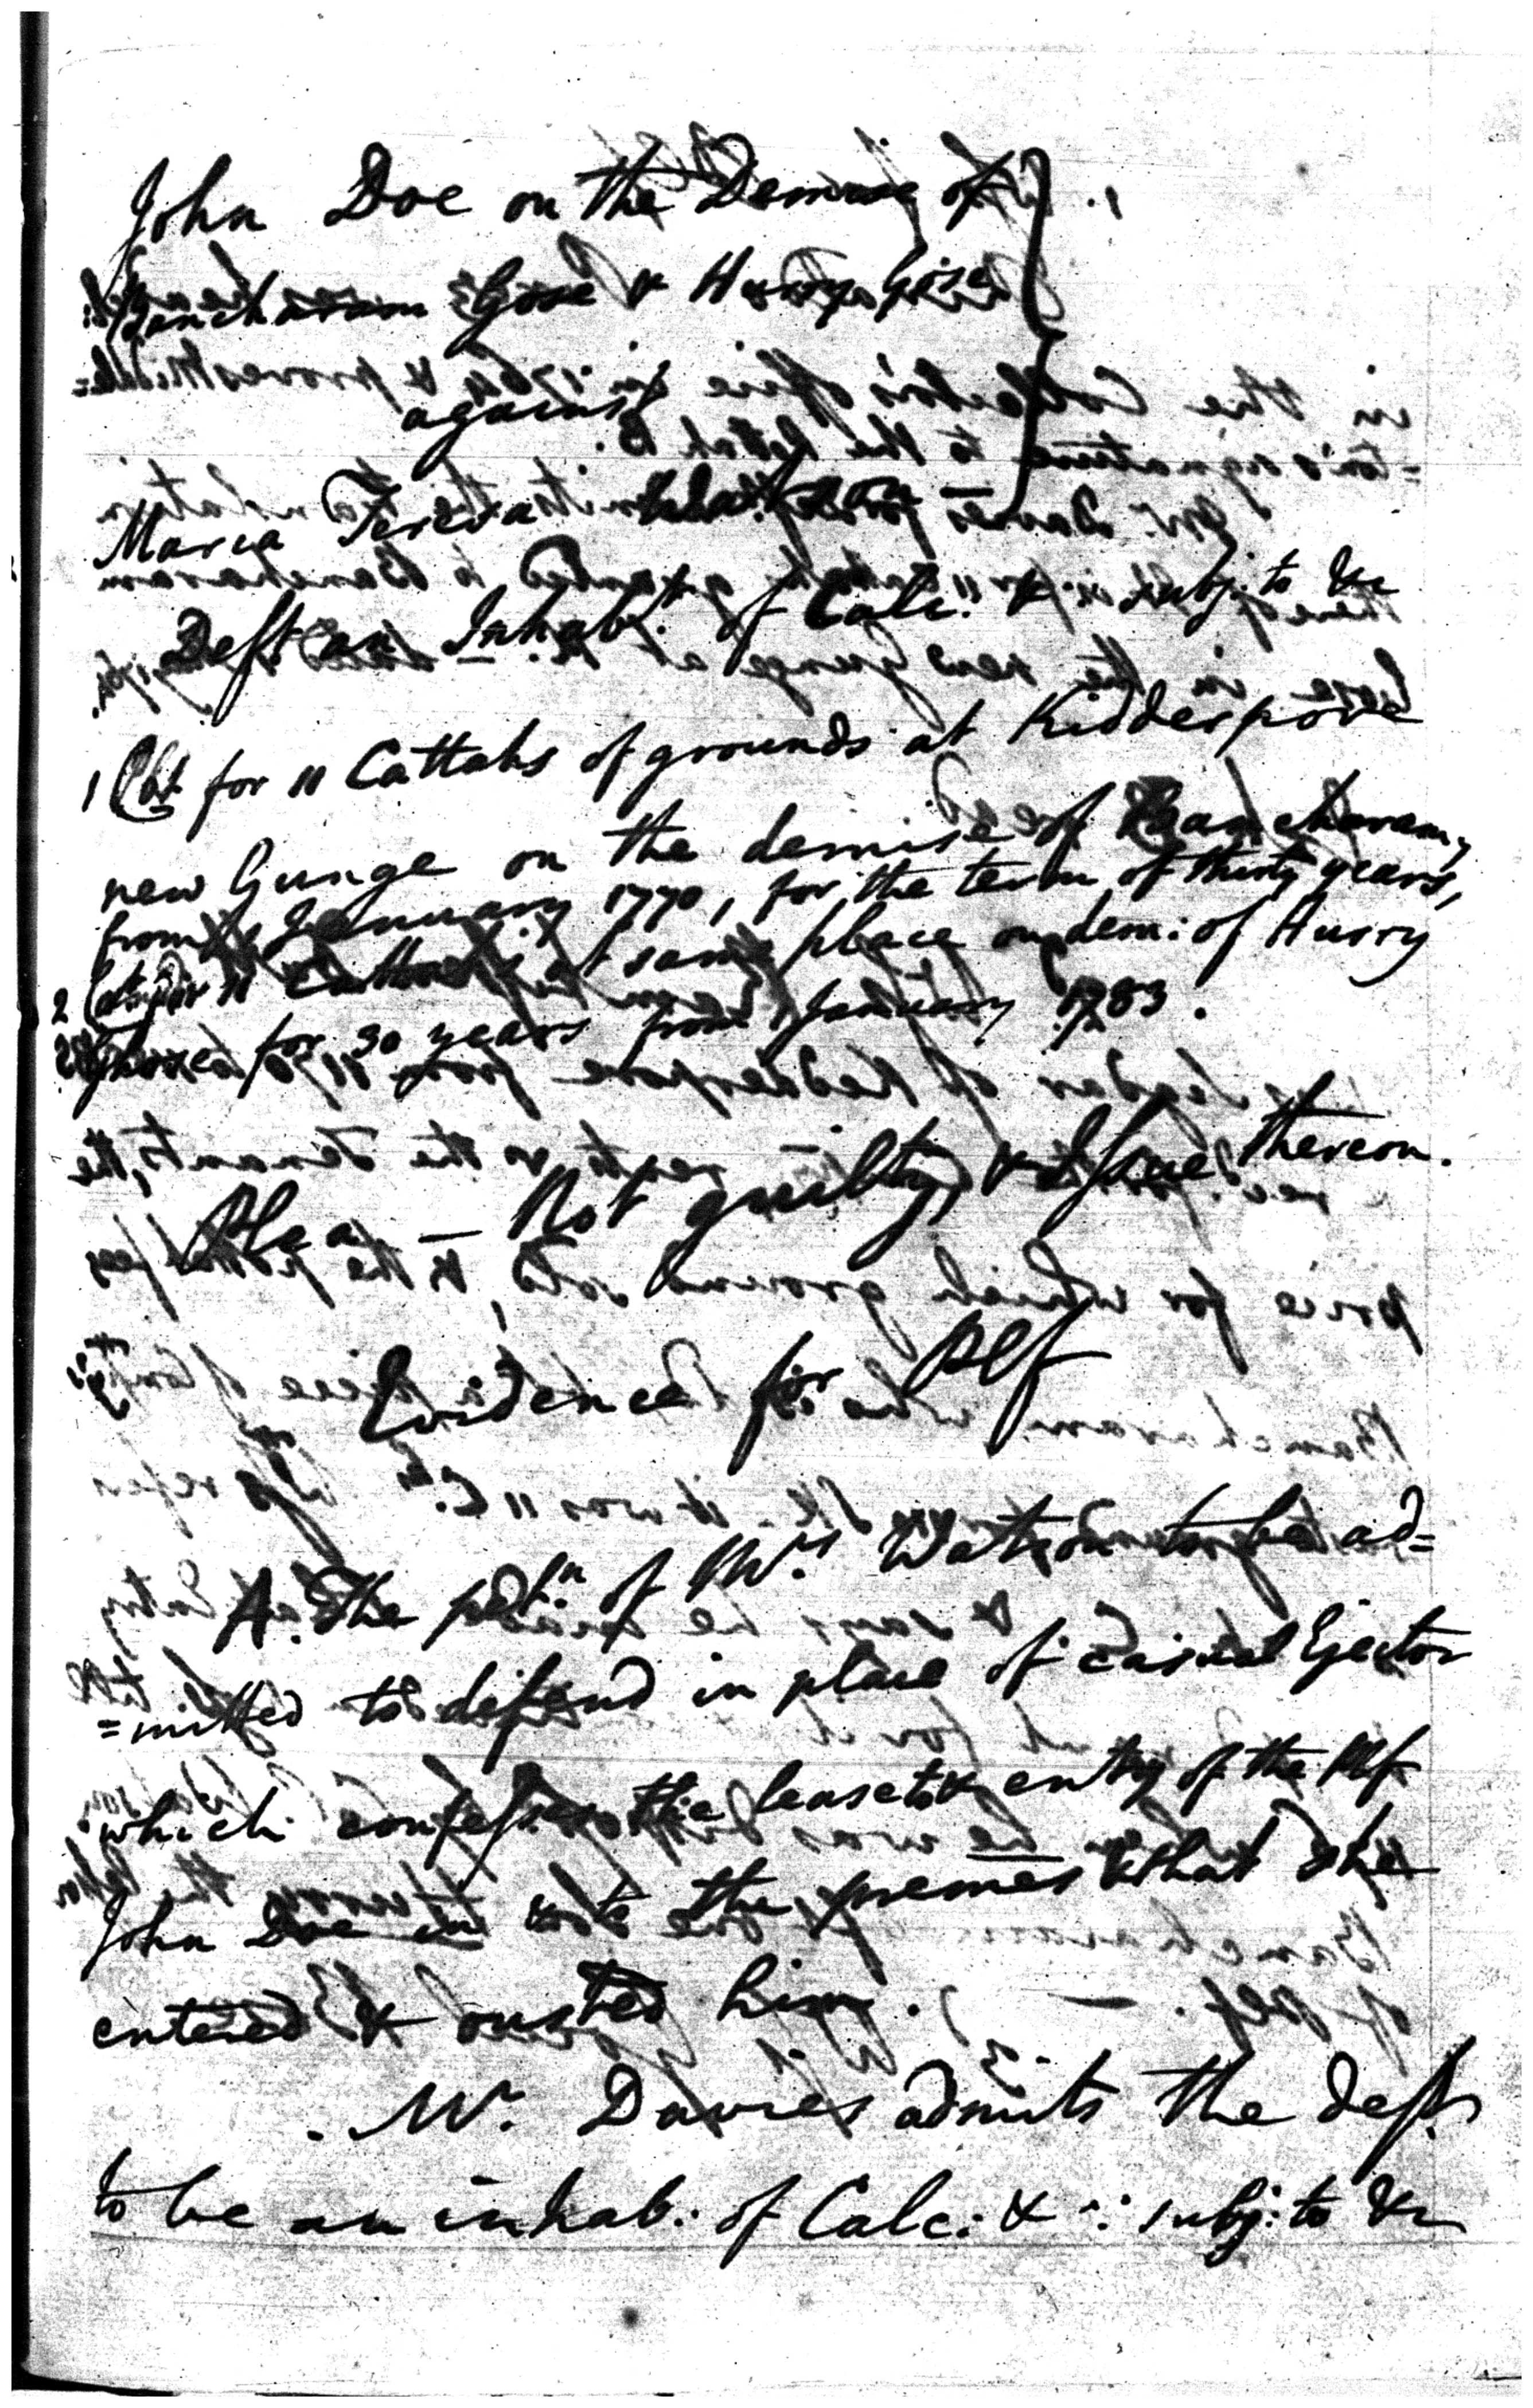 John Doe on the Demise of
Bancharam Gose & Hurry Gose
against
Maria Teresa Watson —
Deft an Inhabt. of Calc: & ∴ subj: to &c
1 Ct. for 11 Cattahs of grounds at Kidderpore
new Gunge on the demise of Bancharam,
from January 1770, for the term of thirty years,
2 Ct. for 11 Cattahs at same place on dem: of Hurry
Ghose for 30 years from January 1783.
Plea — Not guilty, & Issue thereon.
Evidence for Plf
A. The petn. of Mrs Watson to be ad=
=mitted to defend in place of casual Ejector
which confesses the lease & entry of the Plf
John Doe into the premes & that she
entered & ousted him.
Mr. Davies admits the deft.
to be an inhab: of Calc: & ∴ subj: to &c